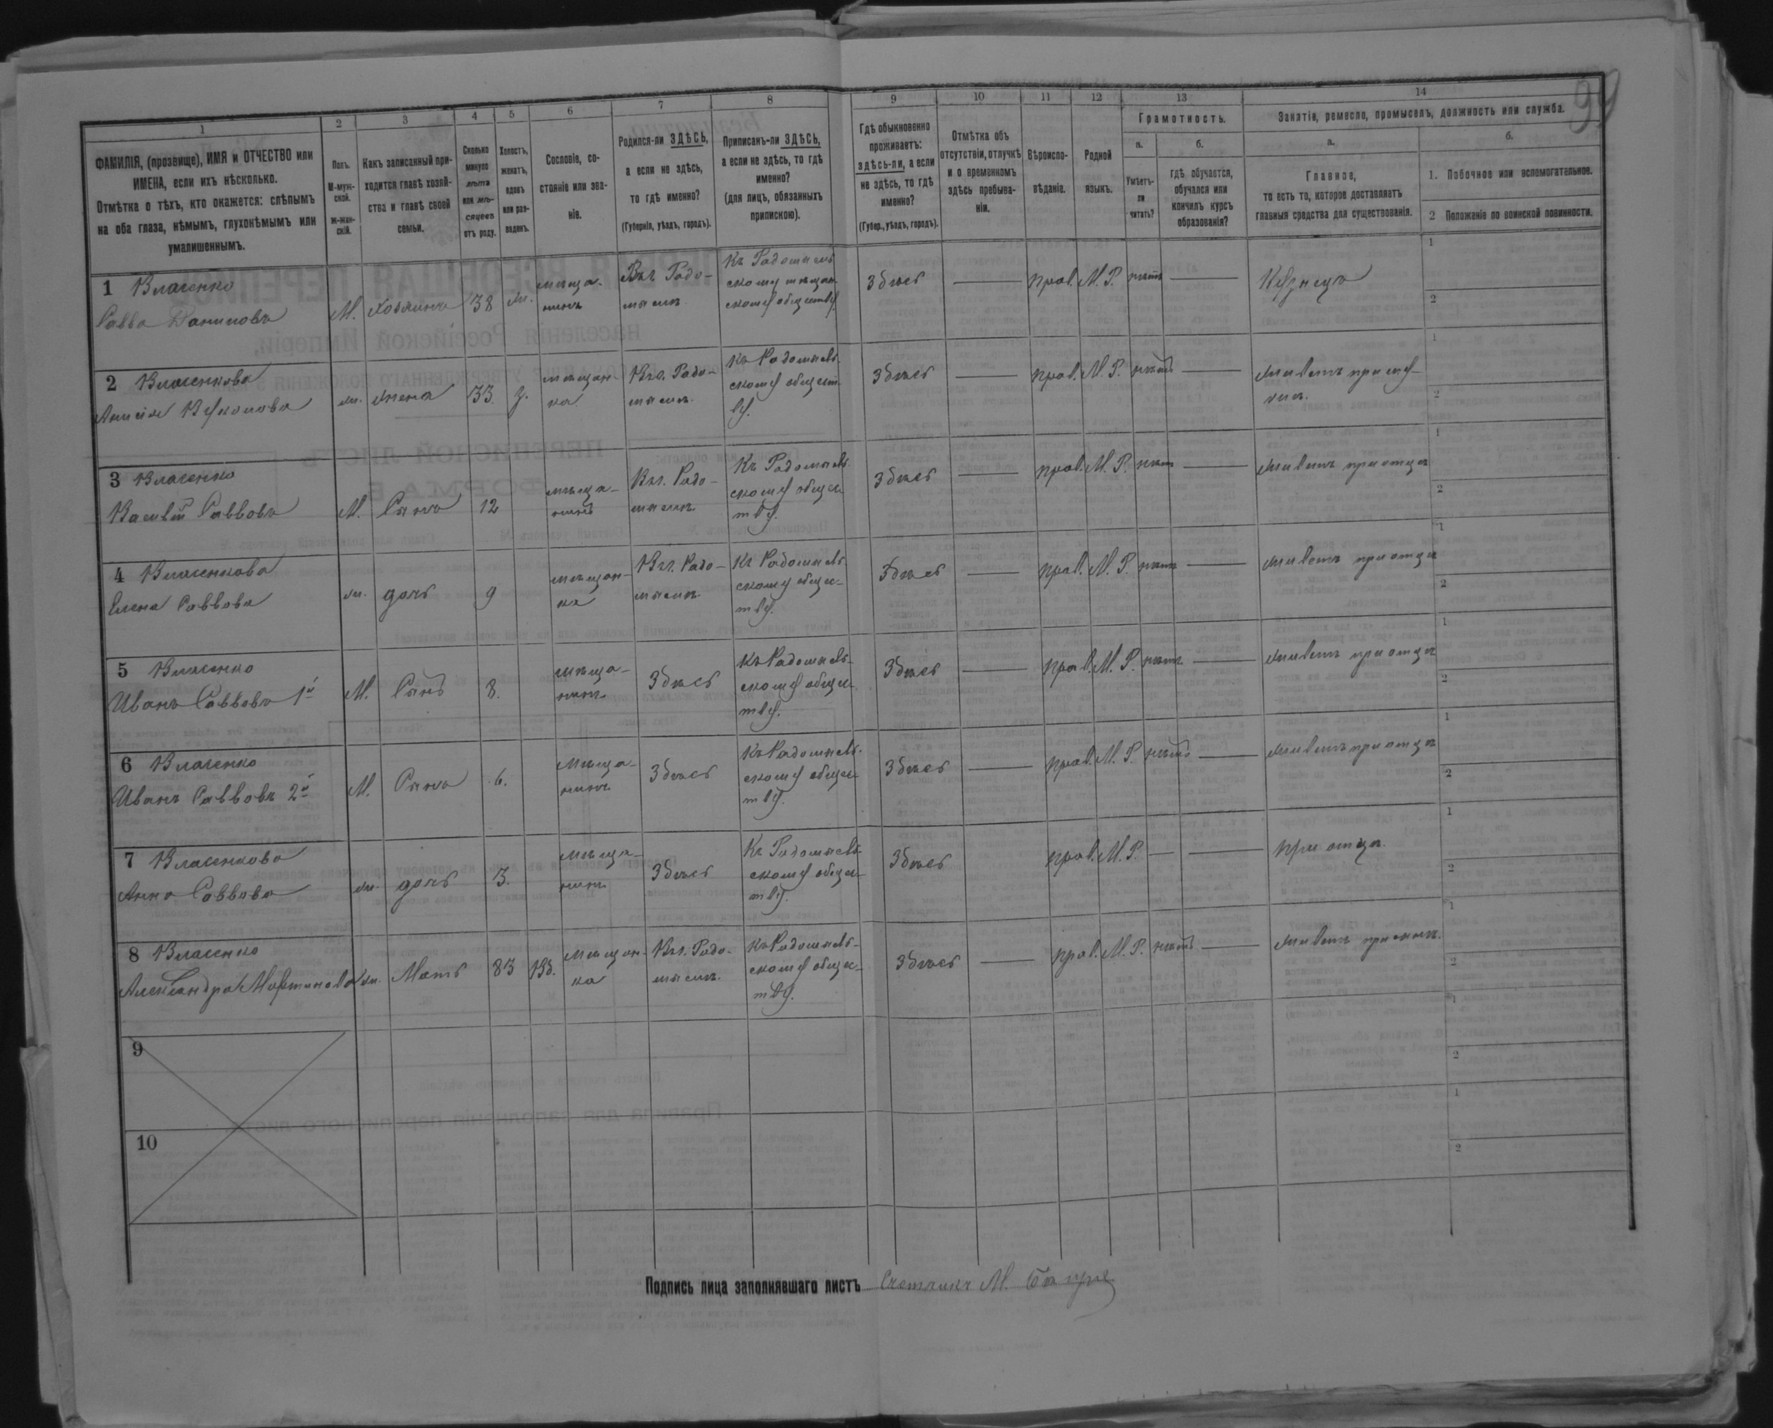 99
1
2
3
4
5
6
7
8
9
10
11
12
13
14
ФАМИЛІЯ, (прозвище), ИМЯ и ОТЧЕСТВО или
ИМЕНА, если ихъ нѣсколько.
Отмѣтка о тѣхъ, кто окажется: слѣпымъ
на оба глаза, нѣмымъ, глухонѣмымъ или
умалишеннымъ.
Полъ.
М-муж-
ской.
ж-жен-
скій.
Какъ записанный при-
ходится главѣ хозяй-
ства и главѣ своей
семьи.
Сколько
минуло
лѣтъ
или мѣ-
сяцевъ
отъ роду.
Холостъ,
женатъ,
вдовъ
или раз-
веденъ.
Сословіе, со-
стояніе или зва-
ніе.
Родился-ли ЗДѢСЬ,
а если не здѣсь,
то гдѣ именно?
(Губернія, уѣздъ, городъ).
Приписанъ-ли ЗДѢСЬ,
а если не здѣсь, то гдѣ
именно?
(для лицъ, обязанныхъ
припискою).
Гдѣ обыкновенно
проживаетъ:
здѣсь-ли, а если
не здѣсь, то гдѣ
именно?
(Губер., уѣздъ, городъ).
Отмѣтка объ
отсутствіи, отлучкѣ
и о временномъ
здѣсь пребыва-
ніи.
Вѣроиспо-
вѣданіе.
Родной
языкъ.
Грамотность.
а.
Умѣетъ-
ли
читать?
б.
гдѣ обучается,
обучался или
кончилъ курсъ
образованія?
Занятіе, ремесло, промыселъ, должность или служба.
а.
Главное,
то есть то, которое доставляетъ
главныя средства для существованія.
б.
1. Побочное или вспомогательное.
2 Положеніе по воинской повинности.
1 Власенко
Савва Даниловъ
М. хозяинъ 38 ж. мѣща-
нинъ
Къ Радомысль
скому мѣщан
скому обществу.
Здѣсь — прав. М. Р. нѣтъ — Кузнецъ
2 Власенкова
ж. жена 33 з. мѣщан-
ка
Къ Радомысль
скому общест
ву.
Здѣсь — прав. М. Р. нѣтъ — живетъ при му-
жѣ.
3 Власенко
Василій Саввовъ
М. Сынъ 12 мѣща-
нинъ
Къ Радомысль
скому общес
тву.
Здѣсь — прав. М. Р. нѣтъ — живетъ при отцѣ
4 Власенкова
Елена Саввова
ж. дочь 9 мѣщан-
ка
Къ Радомысль
скому общес-
тву.
Здѣсь — прав. М. Р. нѣтъ — живетъ при отцѣ
5 Власенко
Иванъ Саввовъ 1й
М. Сынъ 8. мѣща-
нинъ
Здѣсь
Къ Радомысль
скому общес-
тву.
Здѣсь — прав. М. Р. нѣтъ — живетъ при отцѣ
6 Власенко
Иванъ Саввовъ 2й
М. Сынъ 6. мѣща-
нинъ
Здѣсь
Къ Радомысль
скому общес-
тву.
Здѣсь — прав. М. Р. нѣтъ — живетъ при отцѣ
7 Власенкова
Анна Саввова
ж. дочь 3. мѣща-
нинъ
Здѣсь
Къ Радомысль
скому общес-
тву.
Здѣсь прав. М. Р. — — при отцѣ.
8 Власенко
Александра Мартинова
ж. Мать 83 Вд. мѣщан-
ка
Къ Радомысль-
скому общес-
тву.
Здѣсь — прав. М. Р. нѣтъ — живетъ при сынѣ.
9
10
Подпись лица заполнявшаго листъ Счетчикъ М.